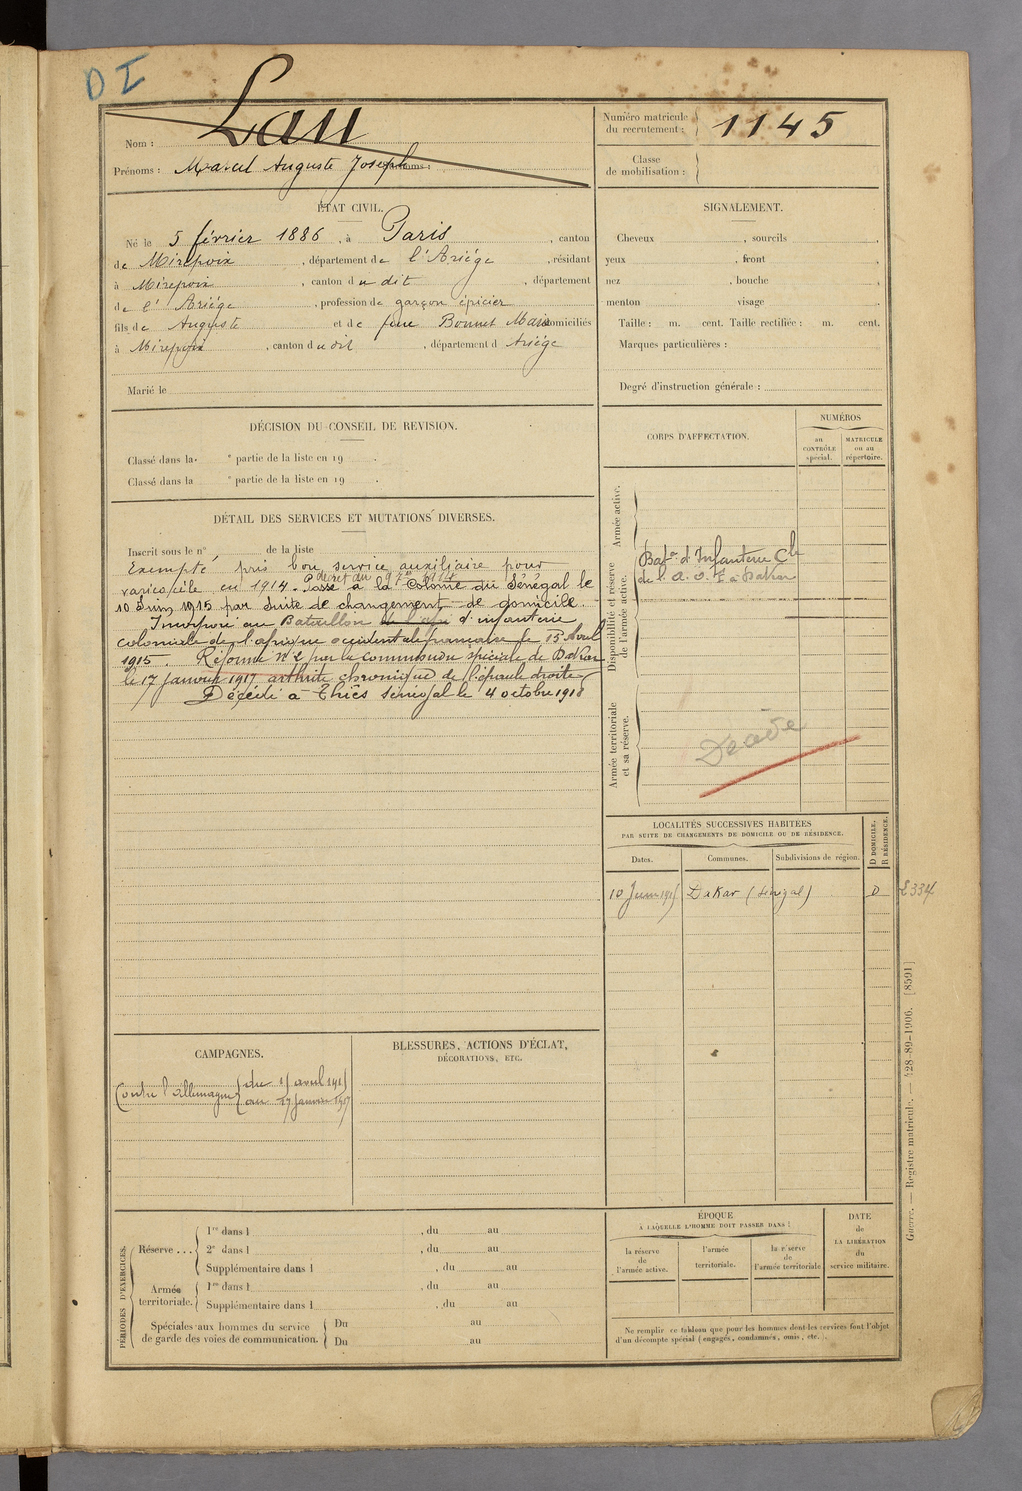 D I
Nom : Lau
Prénoms : Marcel Auguste Joseph
Numéro matricule du recrutement : 1145
Classe de mobilisation :
ÉTAT CIVIL.
Né le 5 février 1886, à Paris, canton
de Mirepoix, département de l'Ariége, résidant
à Mirepoix, canton du dit, département
de l'Ariége, profession de garçon épicier
fils de Auguste et de feue Bonnet Marie domiciliés
à Mirepoix, canton du dit, département d Ariége
Marié le
SIGNALEMENT.
Cheveux , sourcils ,
yeux , front ,
nez , bouche ,
menton visage .
Taille : m. cent. Taille rectifiée : m. cent.
Marques particulières :
Degré d'instruction générale :
DÉCISION DU CONSEIL DE REVISION.
Classé dans la e partie de la liste en 19 .
Classé dans la e partie de la liste en 19 .
DÉTAIL DES SERVICES ET MUTATIONS DIVERSES.
Inscrit sous le n° de la liste
Exempté pris bon service auxiliaire pour
décret du 9 7bre 1914
varicocèle en 1914. Passé à la Colonie du Sénégal le
10 Juin 1915 par suite de changement de domicile.
Incorporé au Bataillon d'infanterie
coloniale de l'afrique occidentale française le 15 Avril
1915. Réformé n° 2 par la commission spéciale de Dakar
le 17 janvier 1917 arthrite chronique de l'épaule droite
Décédé à Thiès Sénégal le 4 octobre 1918
CORPS D'AFFECTATION.
NUMÉROS
au CONTRÔLE spécial.
MATRICULE ou au répertoire.
Armée active.
Disponibilité et réserve de l'armée active.
Bat on d'Infanterie Cle
de l'A. O. F. à Dakar
Armée territoriale et sa réserve.
Décédé
LOCALITÉS SUCCESSIVES HABITÉES
PAR SUITE DE CHANGEMENTS DE DOMICILE OU DE RÉSIDENCE.
Dates. Communes. Subdivisions de région. D DOMICILE. R RÉSIDENCE.
10 Juin 1915 Dakar (Sénégal) D L334
CAMPAGNES.
Contre l'allemagne du 15 avril 1915
au 17 janvier 1917
BLESSURES, ACTIONS D'ÉCLAT,
DÉCORATIONS, ETC.
PÉRIODES D'EXERCICES.
Réserve ...
1re dans l , du au
2e dans l , du au
Supplémentaire dans l , du au
Armée territoriale.
1re dans l , du au
Supplémentaire dans l , du au
Spéciales aux hommes du service
de garde des voies de communication.
Du au
Du au
ÉPOQUE
À LAQUELLE L'HOMME DOIT PASSER DANS :
la réserve de l'armée active.
l'armée territoriale.
la réserve de l'armée territoriale.
DATE
de
LA LIBÉRATION
du
service militaire.
Ne remplir ce tableau que pour les hommes dont les services font l'objet
d'un décompte spécial (engagés, condamnés, omis, etc.).
Guerre. — Registre matricule. — 428-89-1906. [8591]